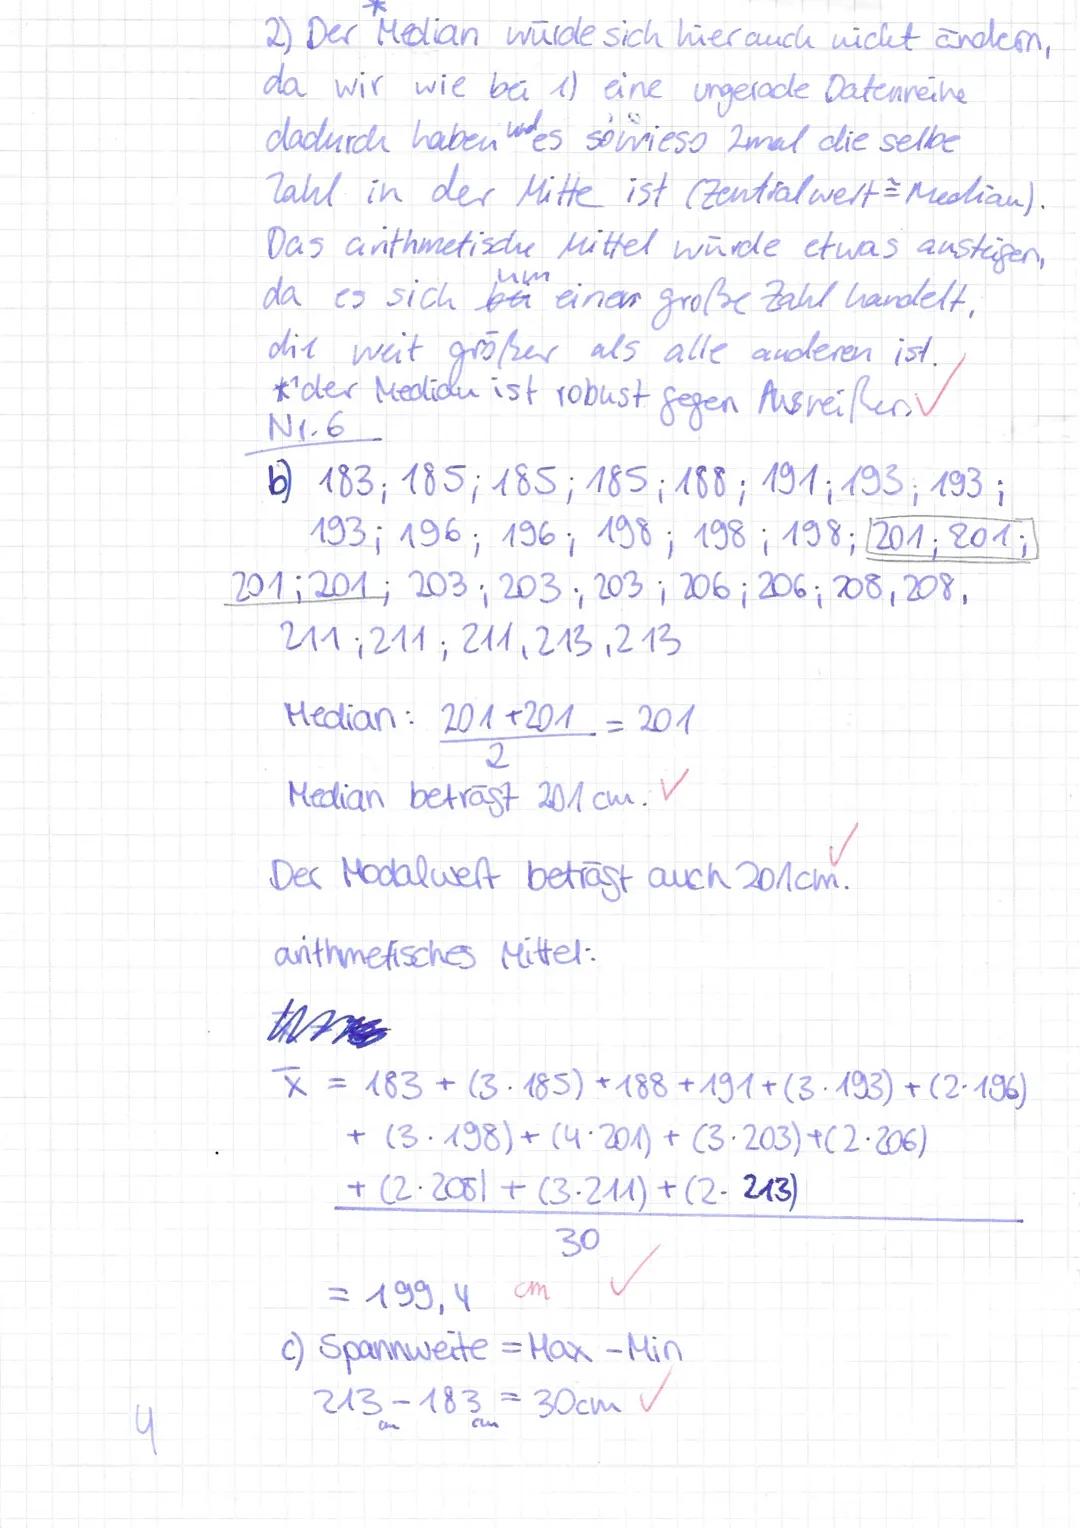 *
2) Der Median würde sich hier auch nicht ändern,
da wir wie bei 1) eine ungerade Datenreihe
dadurch haben und es sowieso 2mal die selbe
Zahl in der Mitte ist (Zentralwert ≙ Median).
Das arithmetische Mittel würde etwas ansteigen,
da es sich um eine große Zahl handelt,
die weit größer als alle anderen ist.
*¹der Median ist robust gegen Ausreißer. ✓
Nr. 6
b) 183; 185; 185; 185; 188; 191; 193; 193;
193; 196; 196; 198; 198; 198; 201; 201;
201; 201; 203; 203; 203; 206; 206; 208, 208,
211; 211; 211, 213, 213
Median: 201 + 201 = 201
2
Median beträgt 201 cm. ✓
Der Modalwert beträgt auch 201cm. ✓
arithmetisches Mittel:
x̅ = 183 + (3 · 185) + 188 + 191 + (3 · 193) + (2 · 196)
+ (3 · 198) + (4 · 201) + (3 · 203) + (2 · 206)
+ (2 · 208) + (3 · 211) + (2 · 213)
30
= 199,4 cm ✓
c) Spannweite = Max - Min
213 cm - 183 cm = 30cm ✓
4